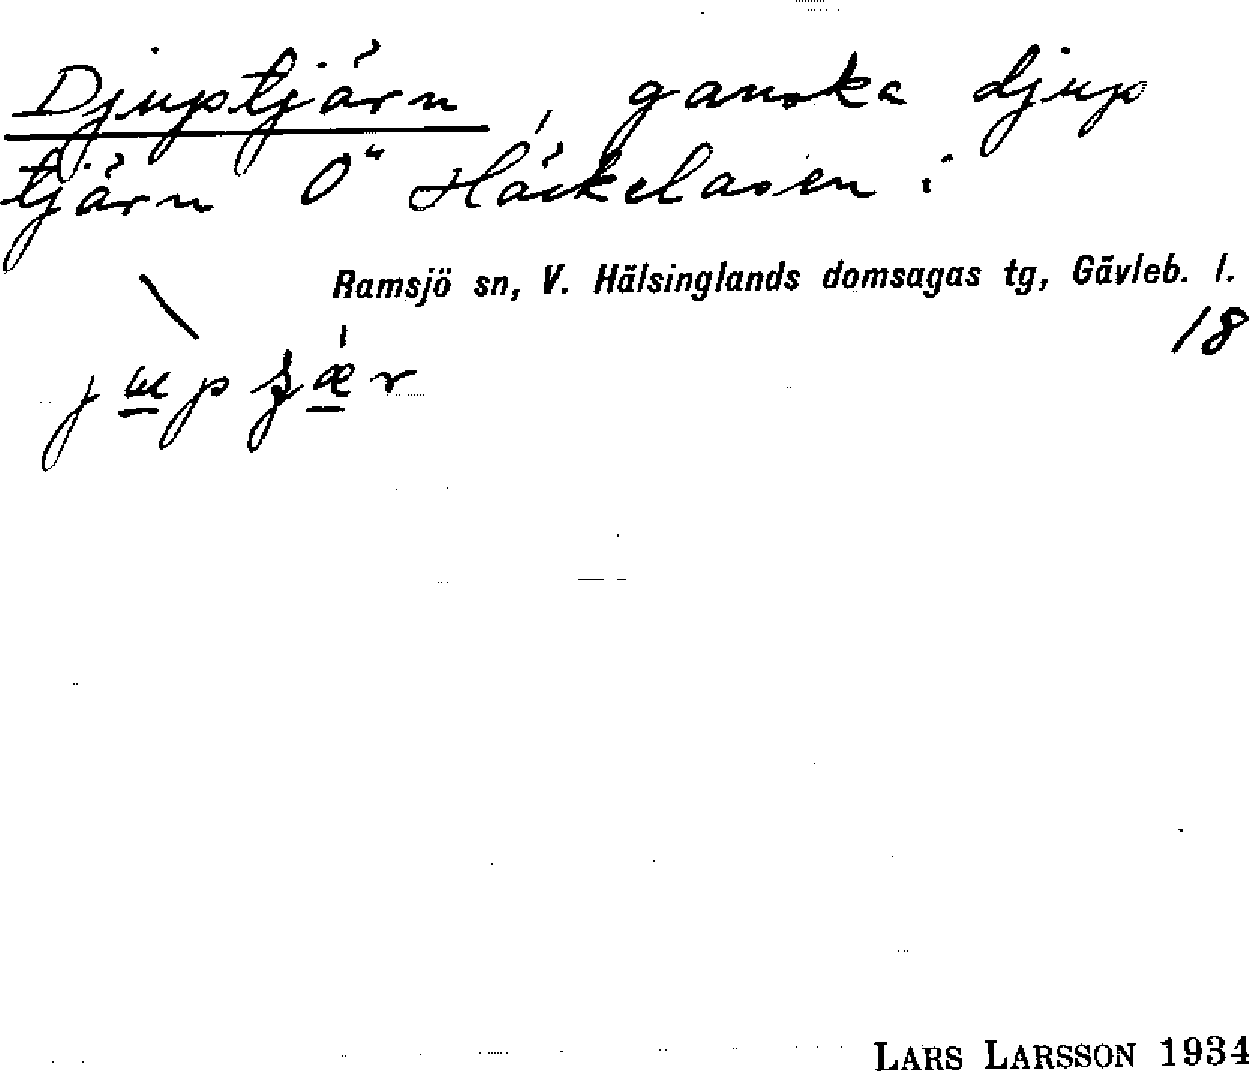 Djuptjärn, ganska djup
tjärn Ö Häckelåsen i
Ramsjö sn, V. Hälsinglands domsagas tg, Gävleb. l.
18
LARS LARSSON 1934